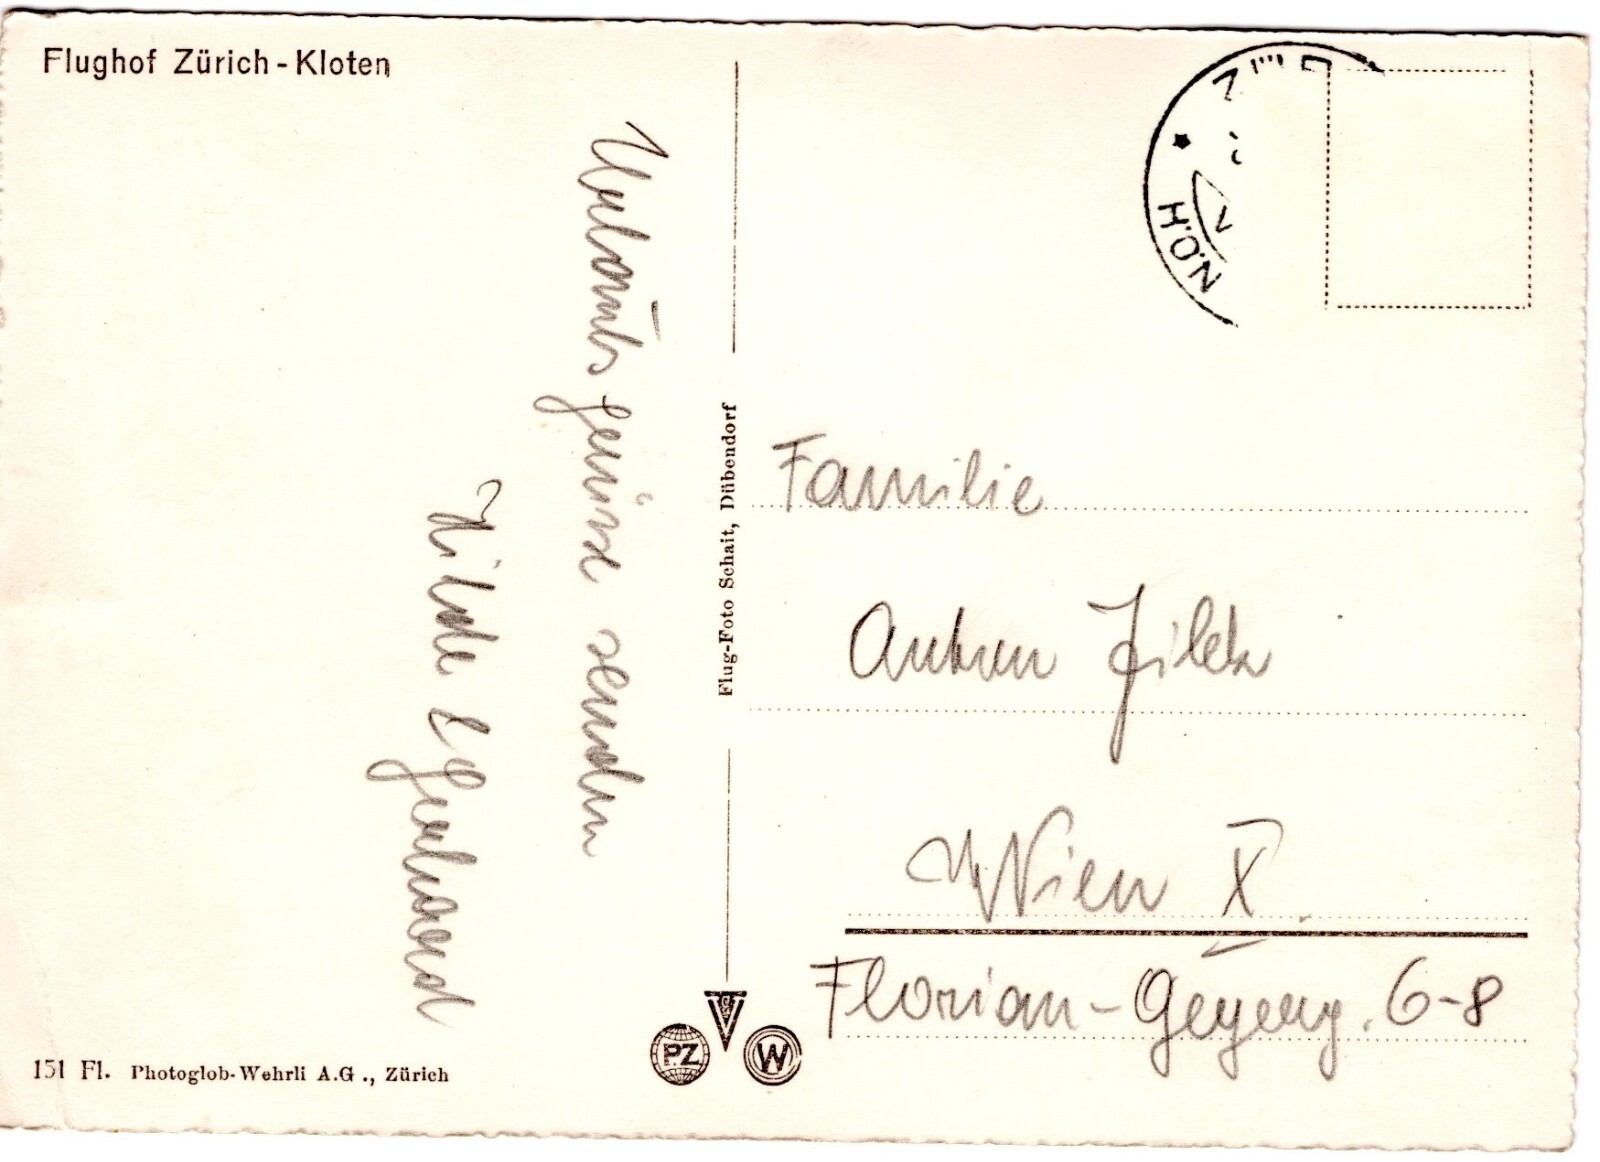 Flughof Zürich-Kloten
Urlaubsgrüsse senden
Hilde & Gerhard
151 Fl. Photoglob-Wehrli A.G., Zürich
Flug-Foto Schait, Dübendorf
PZ
W
NÖH
Familie
Wien X.
Florian-Geyerg. 6-8